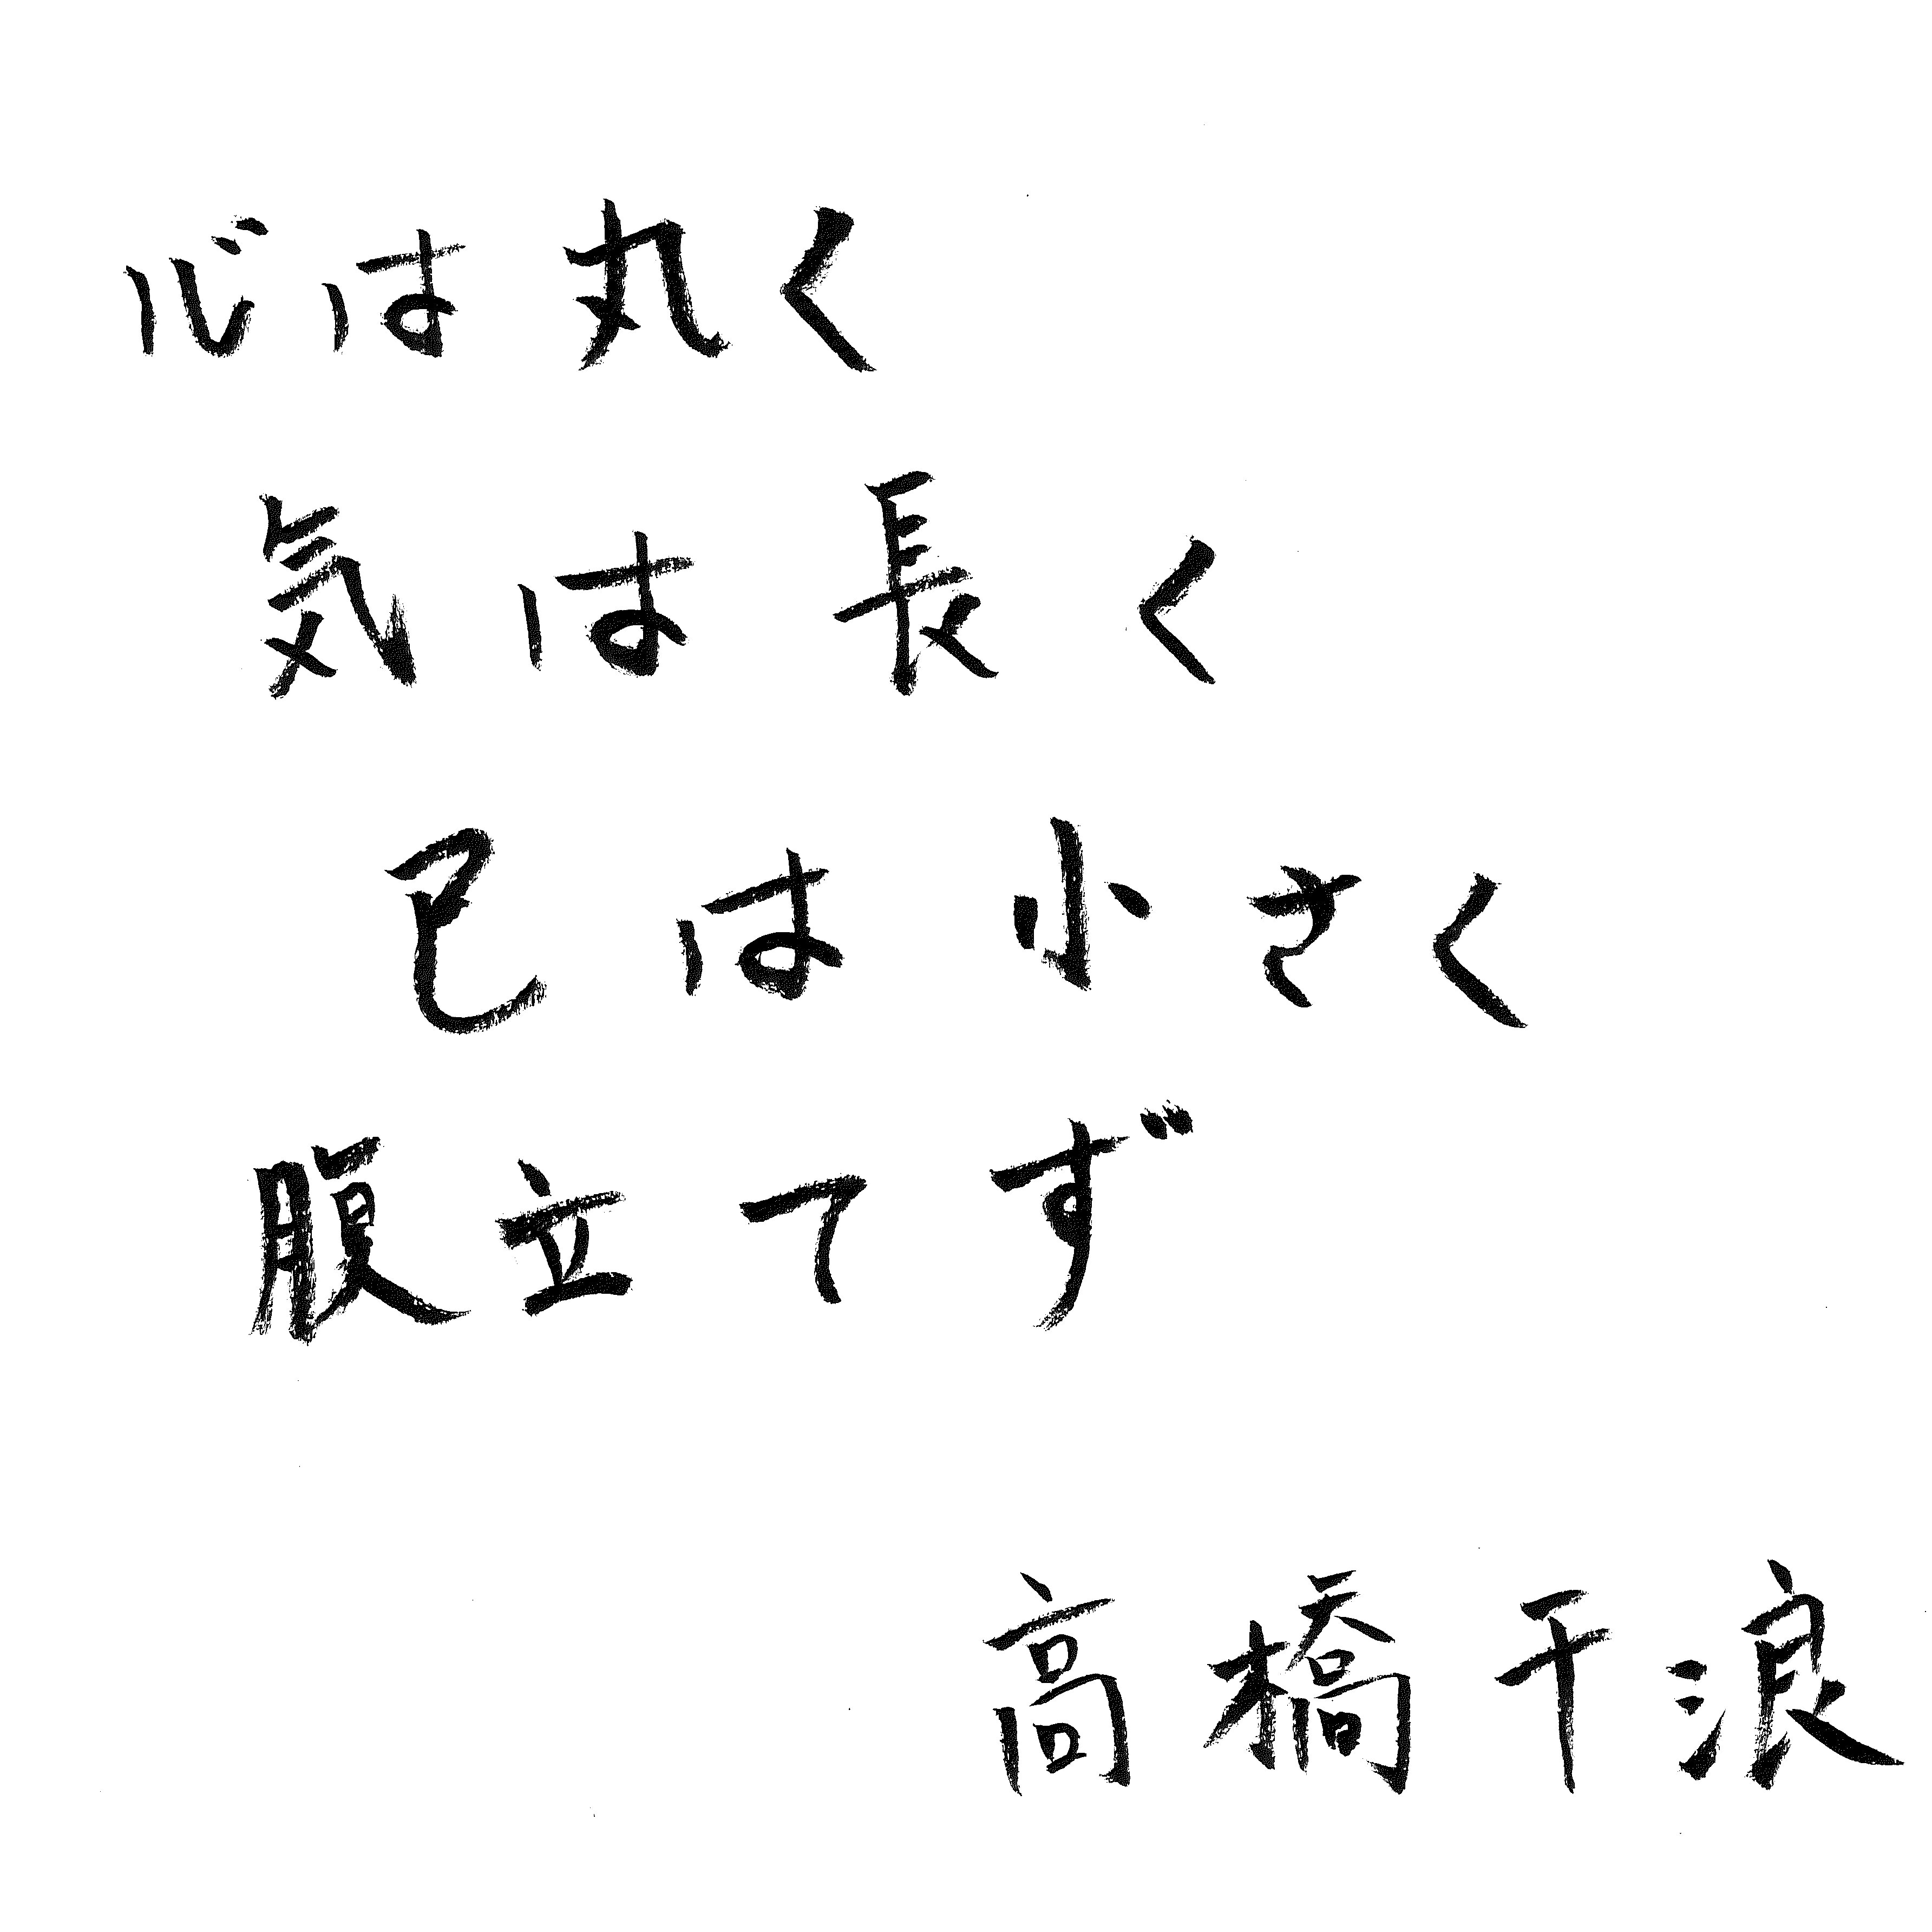 心は丸く
気は長く
己は小さく
腹立てず
高橋千浪